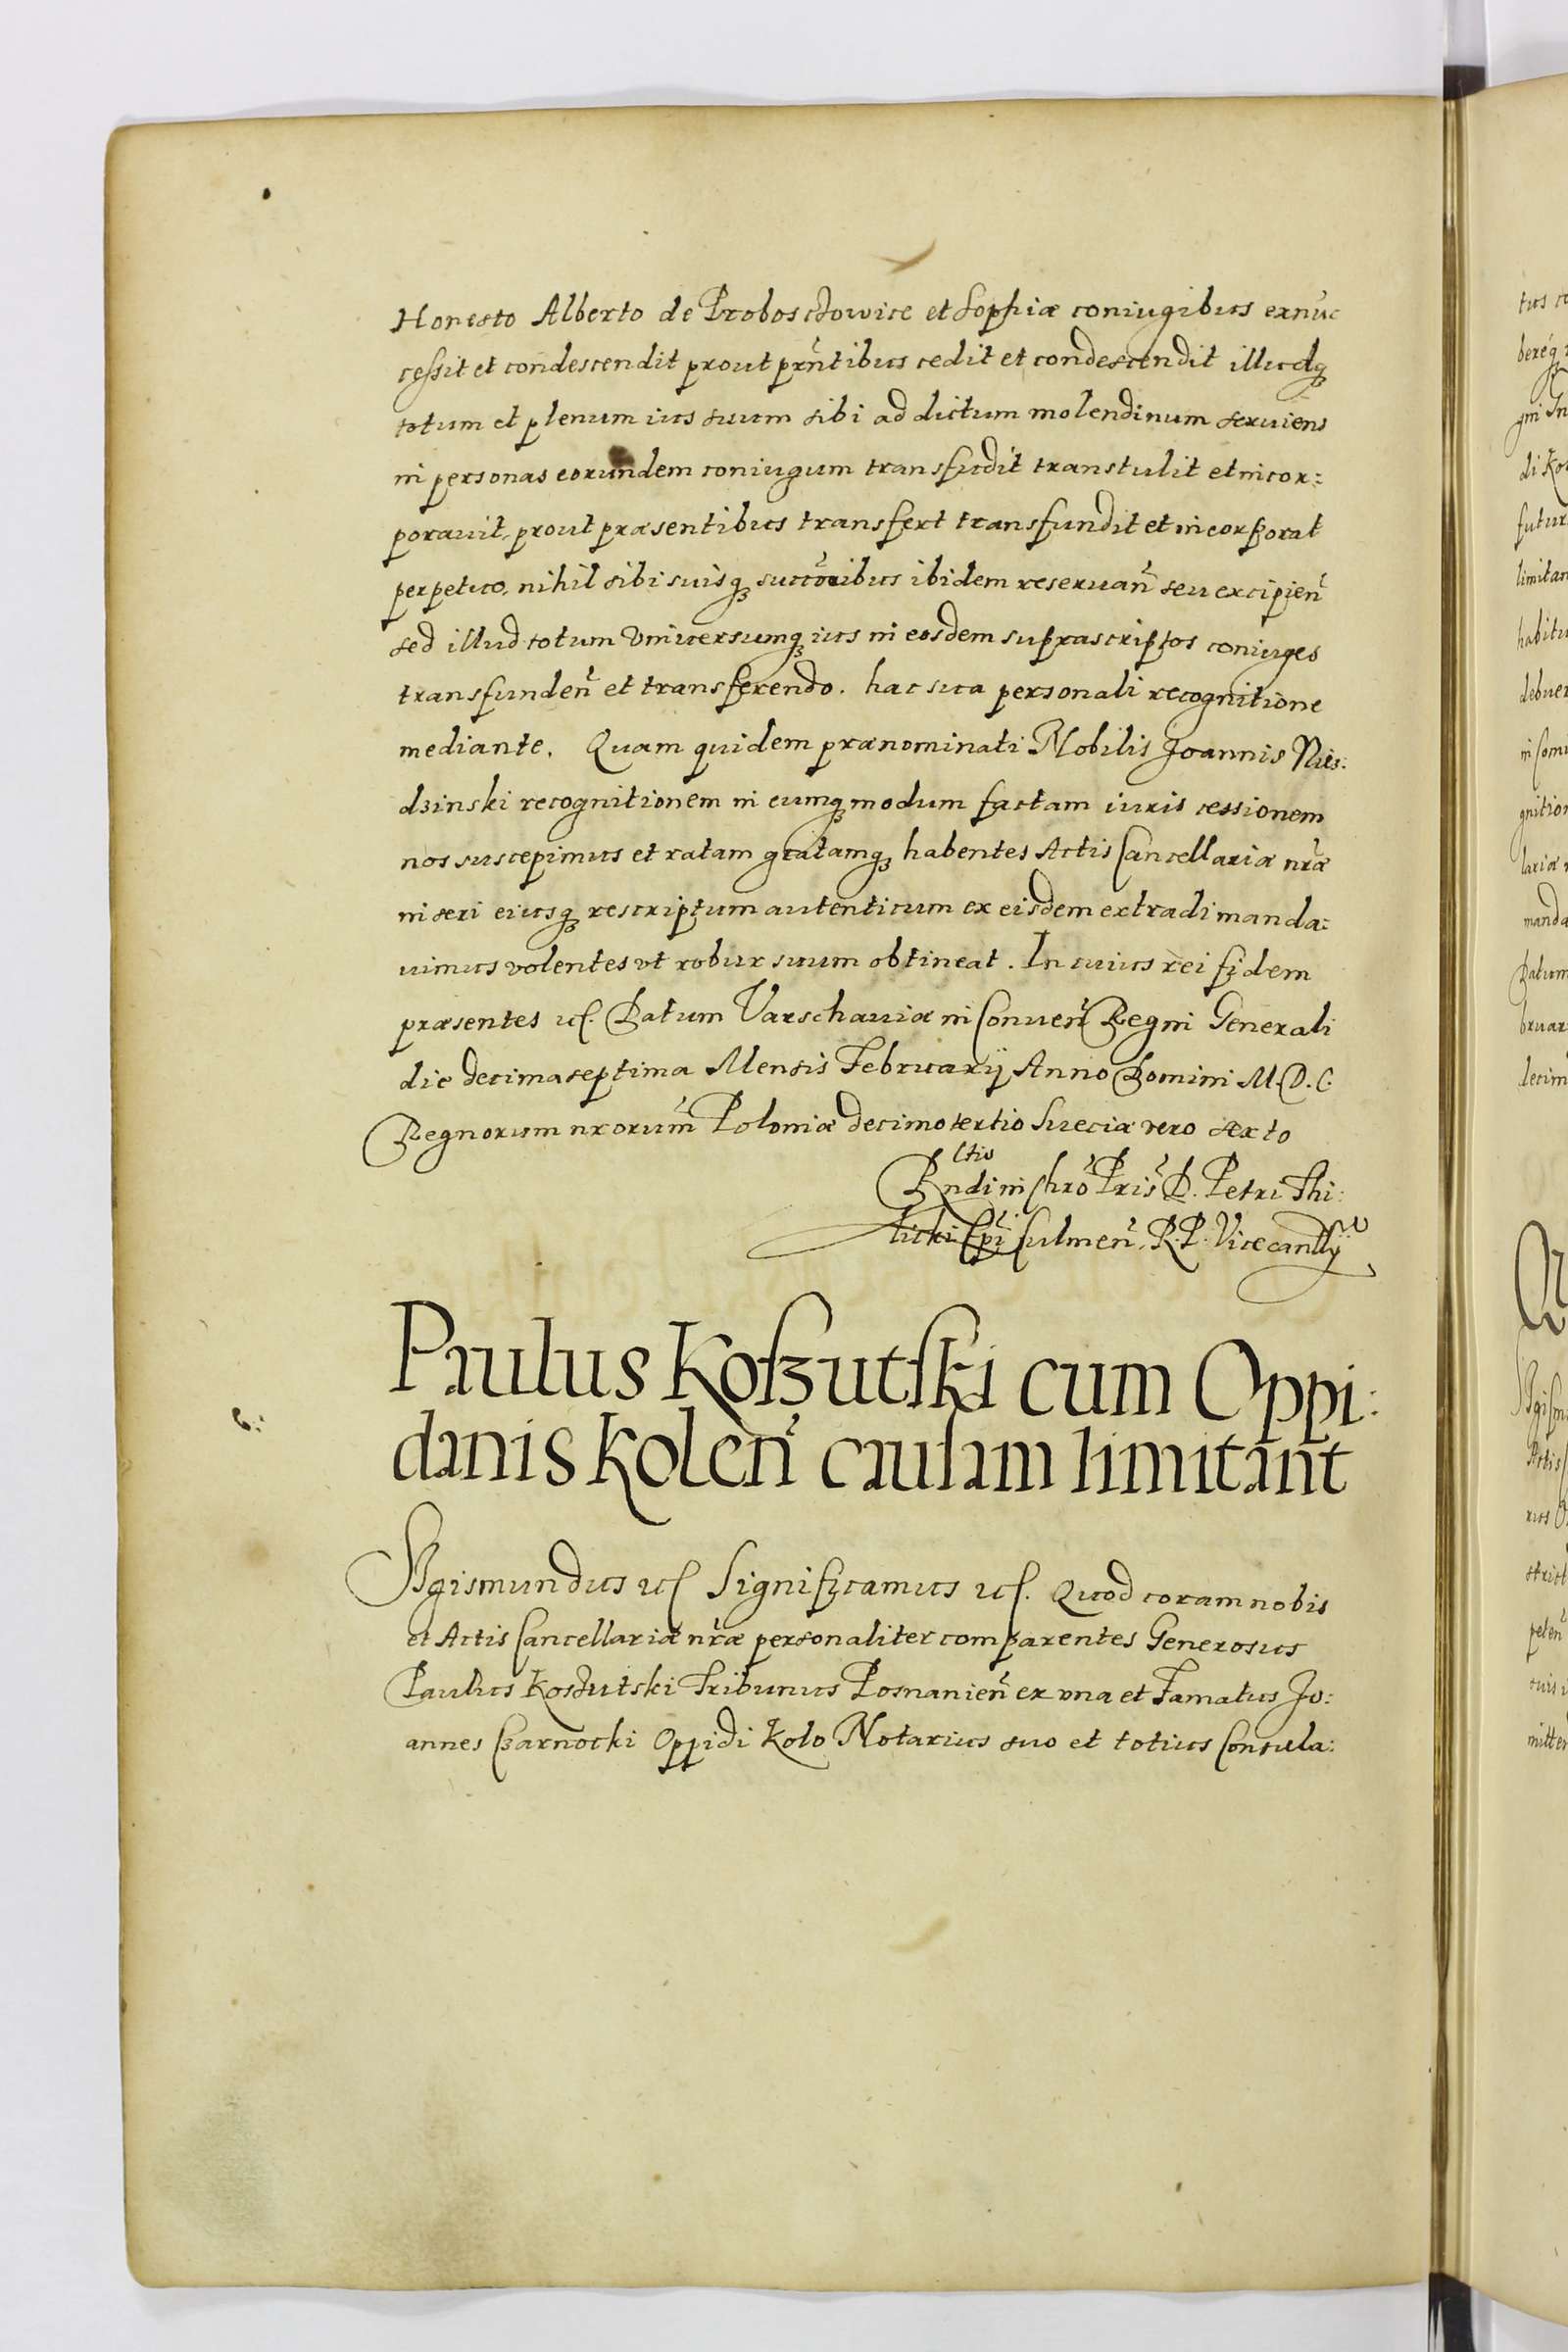 Honesto Alberto de Proboszczowice et Sophiæ coniugibus exnũc
cessit et condescendit prout pñtibus cedit et condescendit illudq̃
totum et plenum ius suum sibi ad dictum molendinum seruiens
in personas eorundem coniugum transfudit transtulit et incor:
porauit, prout præsentibus transfert transfundit et incorporat
perpetuo, nihil sibi suisq̃ succõribus ibidem reseruañ seu excipieñ
sed illud totum vniuersumq̃ ius in eosdem suprascriptos coniuges
transfundeñ et transferendo. hac sua personali recognitione
mediante. Quam quidem prænominati Nobilis Joannis Nies:
dzinski recognitionem in eumq̃ modum factam iuris cessionem
nos suscepimus et ratam gratamq̃ habentes Actis Cancellariæ nr̃æ
inseri eiusq̃ rescriptum autenticum ex eisdem extradi manda:
uimus volentes vt robur suum obtineat. In cuius rei fidem
præsentes ec̃. Datum Varschauiæ in Conueñ Regni Generali
die decimaseptima Mensis Februarij Anno Domini M.D.C.
Regnorum nrorum̃ Poloniæ decimotertio Sueciæ vero sexto
Rndi in Chro Pris D. Petri Thi:
licki Epi Culmeñ. R. P. Vicecancllỹ
Paulus Koszutski cum Oppi:
danis Koleñ causam limitant
Sigismundus ec̃ Significamus ec̃. Quod coram nobis
et Actis Cancellariæ nr̃æ personaliter comparentes Generosus
Paulus Koszutski Tribunus Posnanieñ ex vna et Famatus Jo:
annes Czarnocki Oppidi Kolo Notarius suo et totius Consula: